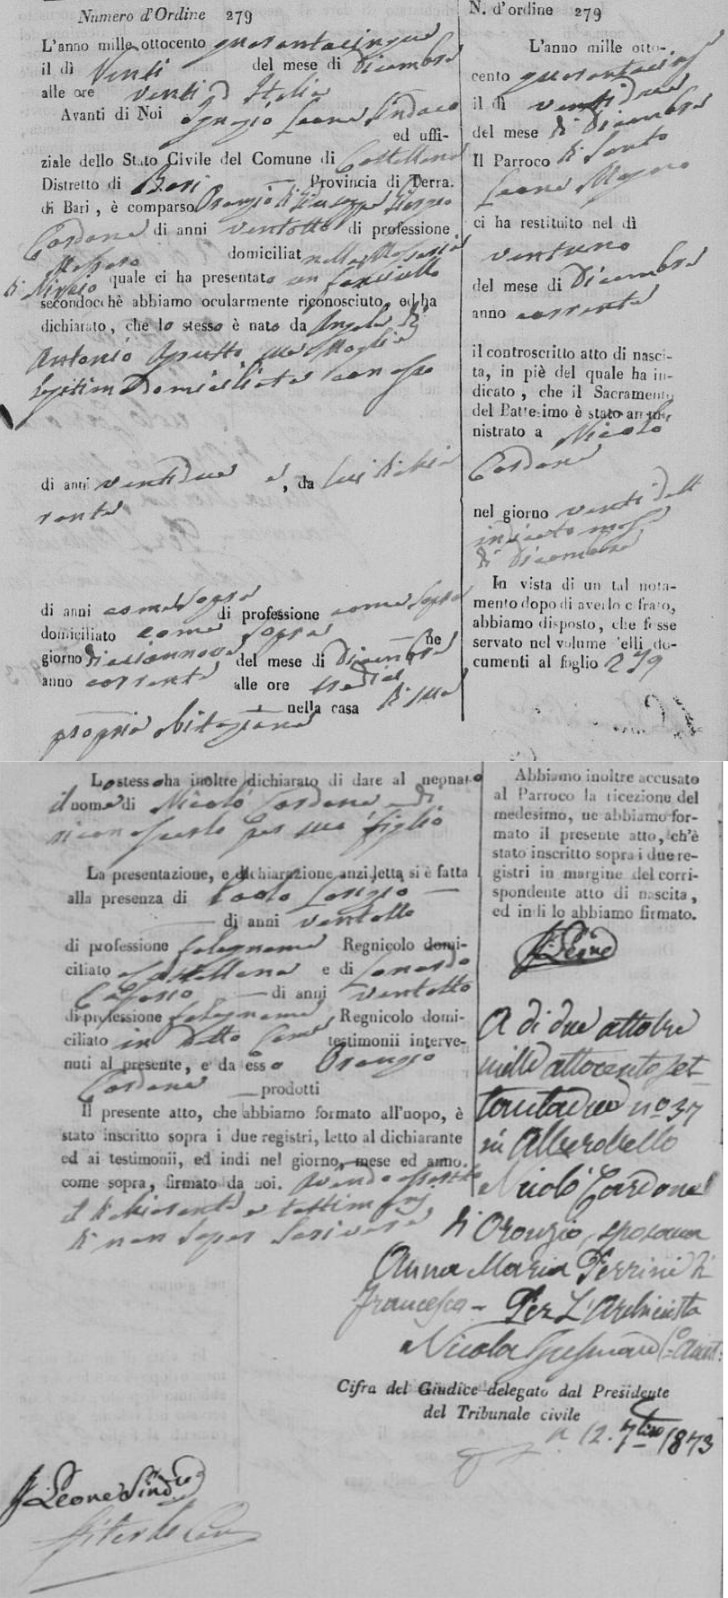 Numero d'Ordine 279
L'anno mille ottocento quarantacinque
il dì Venti del mese di Dicembre
alle ore venti d'Italia
Avanti di Noi Ignazio Leone Sindaco
ed uffi-
ziale dello Stato Civile del Comune di Castellana
Distretto di Bari Provincia di Terra
di Bari, è comparso Oronzo di Giuseppe
Cardone di anni ventotto di professione
Massaro domiciliat nella Masseria
di quale ci ha presentato un fanciullo
secondochè abbiamo ocularmente riconosciuto, ed ha
dichiarato, che lo stesso è nato da Angela di
Antonio sua Moglie
legittima Domiciliata con esso
di anni ventidue e, da lui dichia
rante
di anni come sopra di professione come sopra
domiciliato come sopra ne
giorno diciannove del mese di Dicembre
anno corrente alle ore tredici
nella casa di sua
propria abitazione
N. d'ordine 279
L'anno mille otto-
cento quarantacinq
il dì ventidue
del mese di Dicembre
Il Parroco di Santo
Leone Magno
ci ha restituito nel dì
ventuno
del mese di Dicembre
anno corrente
il controscritto atto di nasci-
ta, in piè del quale ha in-
dicato, che il Sacramento
del Battesimo è stato ammi-
nistrato a Nicolò
Cardone
nel giorno venti dell
indicato mese
di Dicembre
In vista di un tal nota-
mento dopo di averlo cifrato,
abbiamo disposto, che fosse
servato nel volume delli do-
cumenti al foglio 279
Lo stesso ha inoltre dichiarato di dare al neonato
il nome di Nicolò Cardone di
riconoscerlo per suo figlio
La presentazione, e dichiarazione anzidetta si è fatta
alla presenza di Paolo
di anni ventotto
di professione falegname Regnicolo domi-
ciliato Castellana e di Leonardo
di anni ventotto
di professione falegname Regnicolo domi-
ciliato in detto Comune testimonii interve-
nuti al presente, e da esso Oronzo
Cardone prodotti
Il presente atto, che abbiamo formato all'uopo, è
stato inscritto sopra i due registri, letto al dichiarante
ed ai testimonii, ed indi nel giorno, mese ed anno
come sopra, firmato da noi. avendo asserito
il dichiarante e testimonj
di non saper scrivere
Abbiamo inoltre accusato
al Parroco la ricezione del
medesimo, ne abbiamo for-
mato il presente atto, ch'è
stato inscritto sopra i due re-
gistri in margine del corri-
spondente atto di nascita,
ed indi lo abbiamo firmato.
Leone
A di due ottobre
mille ottocento set-
tantadue no 37
in Alberobello
Nicolò Cardone
di Oronzo, sposava
Anna Maria Perrini di
Francesco - Per L'Archivista
Nicola
Cifra del Giudice delegato dal Presidente
del Tribunale civile
12. 7bre 1873
Leone Sindaco